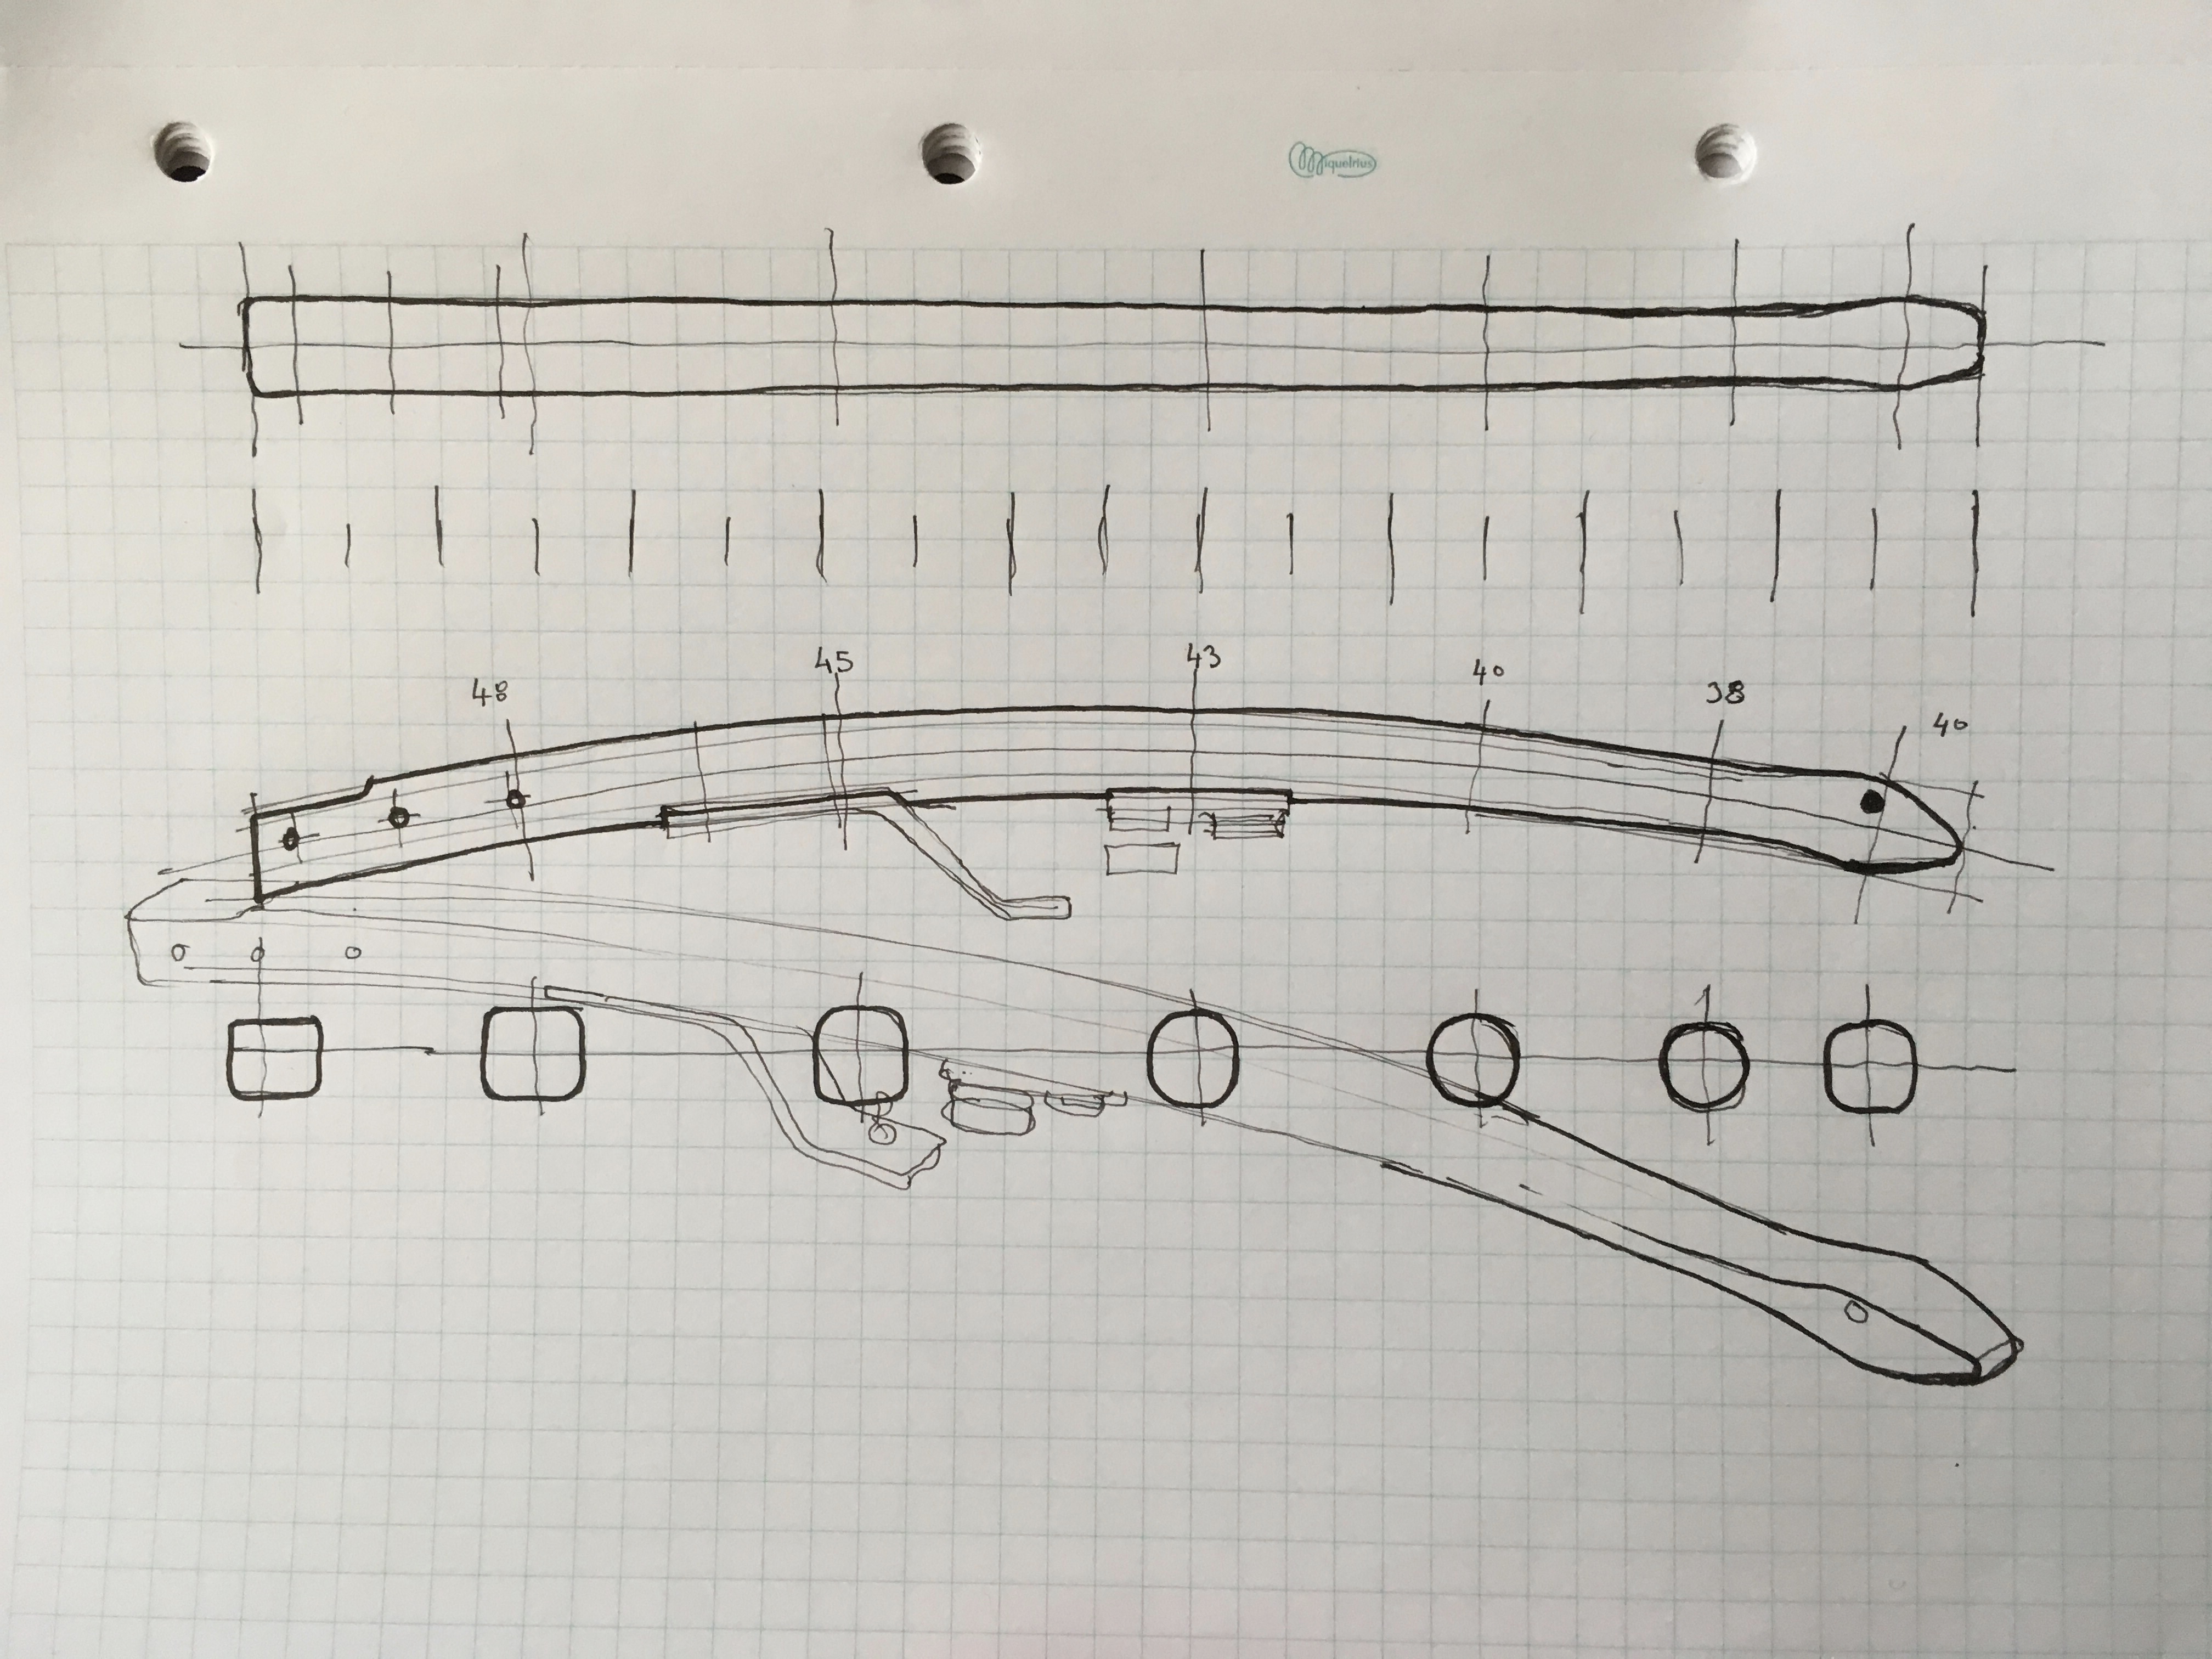 Miquelrius
45
43
48
40
38
40